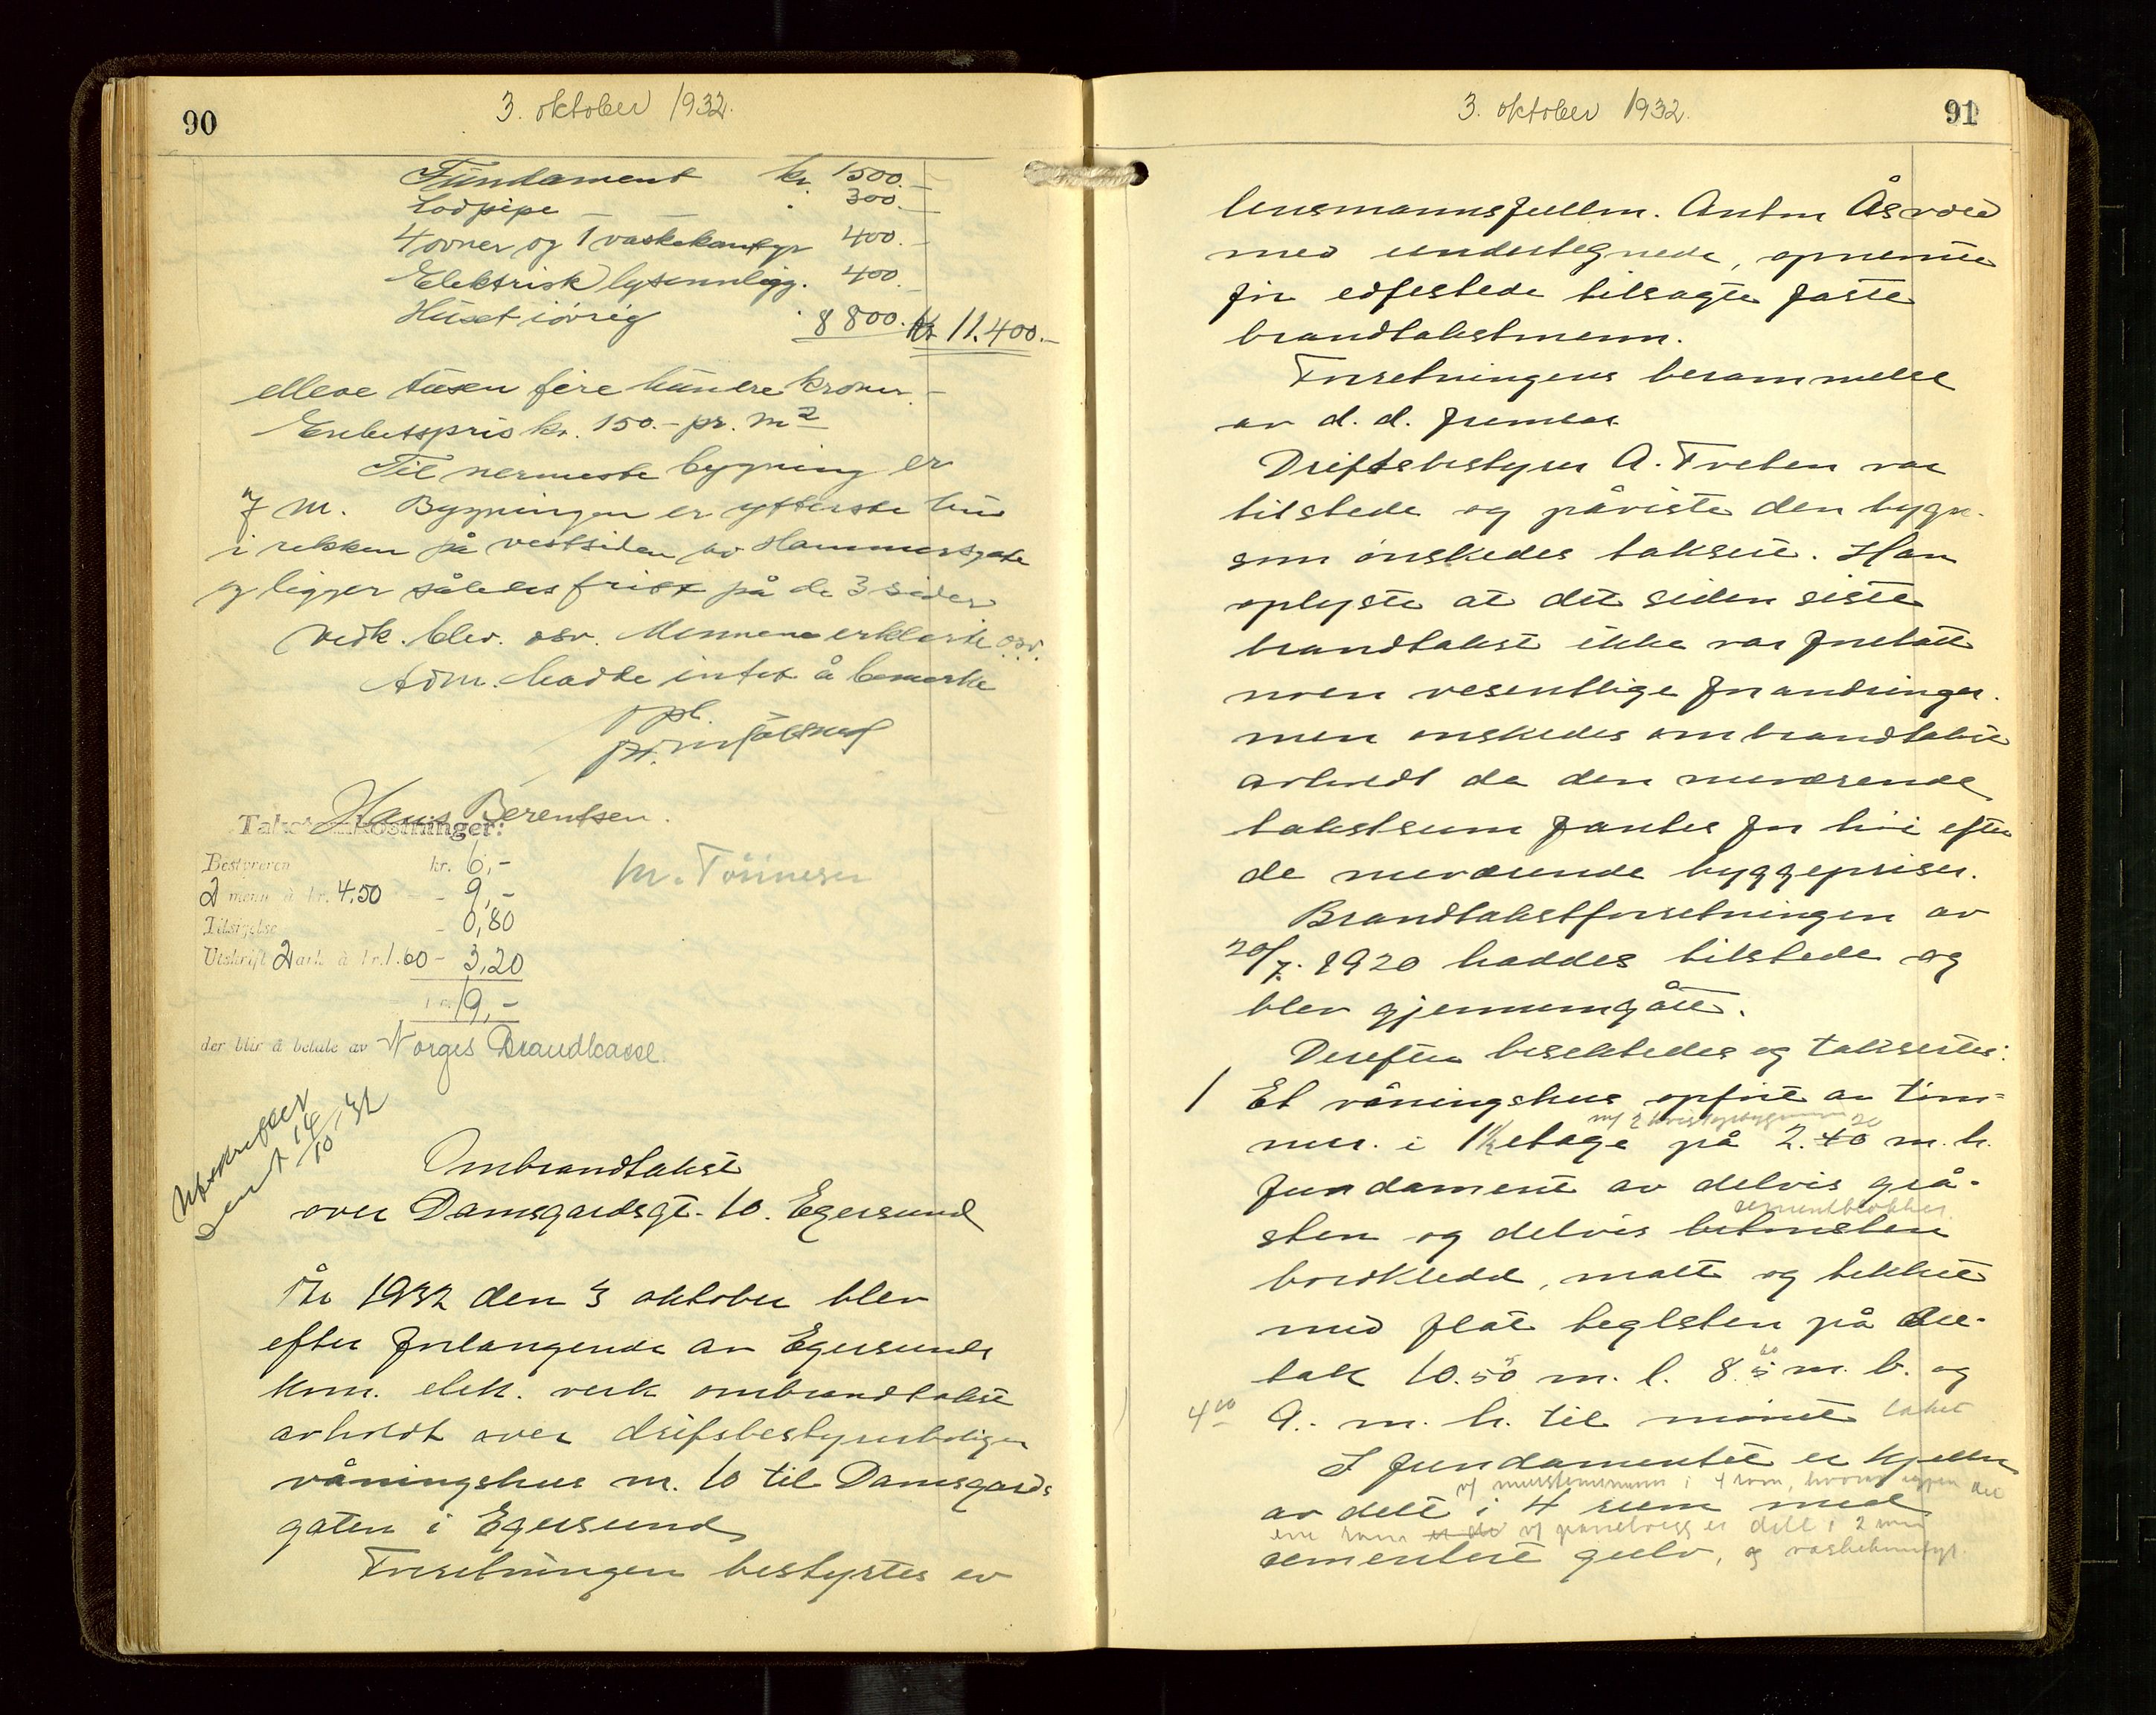 90
3. oktober 1932.
Fundament kr. 1500.-
Lodpipe - - . 300.-
4 ovner og 1 vaskekander 400.-
Elektrisk lysannlegg. 400.-
Huset iøvrig . 8 800. Kr 11.400.-
elleve tusen fire hundre kroner.-
Enhetspris kr. 150.- pr. m2
Til nermeste bygning er
7 m. Bygningen er ytterste hus
i rekken på vestsiden av Hammersgate
og ligger således frit på de 3 sider
Vedk. blev. osv. Mennene erklærte osv.
Adm. hadde intet å bemerke
opl.
Hans Berentsen.
M. Tönnesen
Takstomkostninger:
Bestyreren kr. 6,-
2 menn à kr. 4.50 - 9,-
Tilsigelse - 0,80
Utskrift 2 ark à kr. 1.60 - 3,20
kr. 19,-
der blir å betale av Norges Brandkasse.
Utskrift
sendt 14/10 '32
Ombrandtakst
over Damsgardsgt. 10. Egersund
År 1932 den 3 oktober blev
efter forlangende av Egersunds
kom. elek. verk ombrandtakst
avholdt over drifsbestyrerboligen
våningshus nr. 10 til Damsgards
gaten i Egersund
Forretningen bestyrtes av
3. oktober 1932.
91
lensmannsfullm. Anton Åsvold
med undertegnede, opnevnte
for edfestede tilsagte faste
brandtakstmenn.
Forretningens berammelse
av d. d. fremlas
Driftsbestyrer A. Tveten var
tilstede og påviste den bygn.
som ønskedes taksert. Han
oplyste at det siden siste
brandtakst ikke var foretatt
noen vesentlige forandringer.
men ønskedes ombrandtakst
avholdt da den nuværende
takstsum fantes for høi efter
de nuværende byggepriser.
Brandtakstforretningen av
20/7. 1920 haddes tilstede og
blev gjennemgått.
Derefter besiktedes og taksertes:
1 Et våningshus opført av tøm=
m/ 2 kvistopbygninger 20
mer. i 1½ etage på 2.40 m. h.
fundament av delvis grå-
sementblokker
sten og delvis betonsten
bordkledd, malt og tekket
med flat teglsten på su-
tak 10.50 m. l. 8. m. b. og
4.00 9. m. h. til mønet taket
I fundamentet er kjeller
m/ murstensrum i 4 rom, hvorav igjen det
av delt i 4 rum med
ene rom er de m/ panelvegg er delt i 2 rom
sementert gulv, og vaskekumfyr.